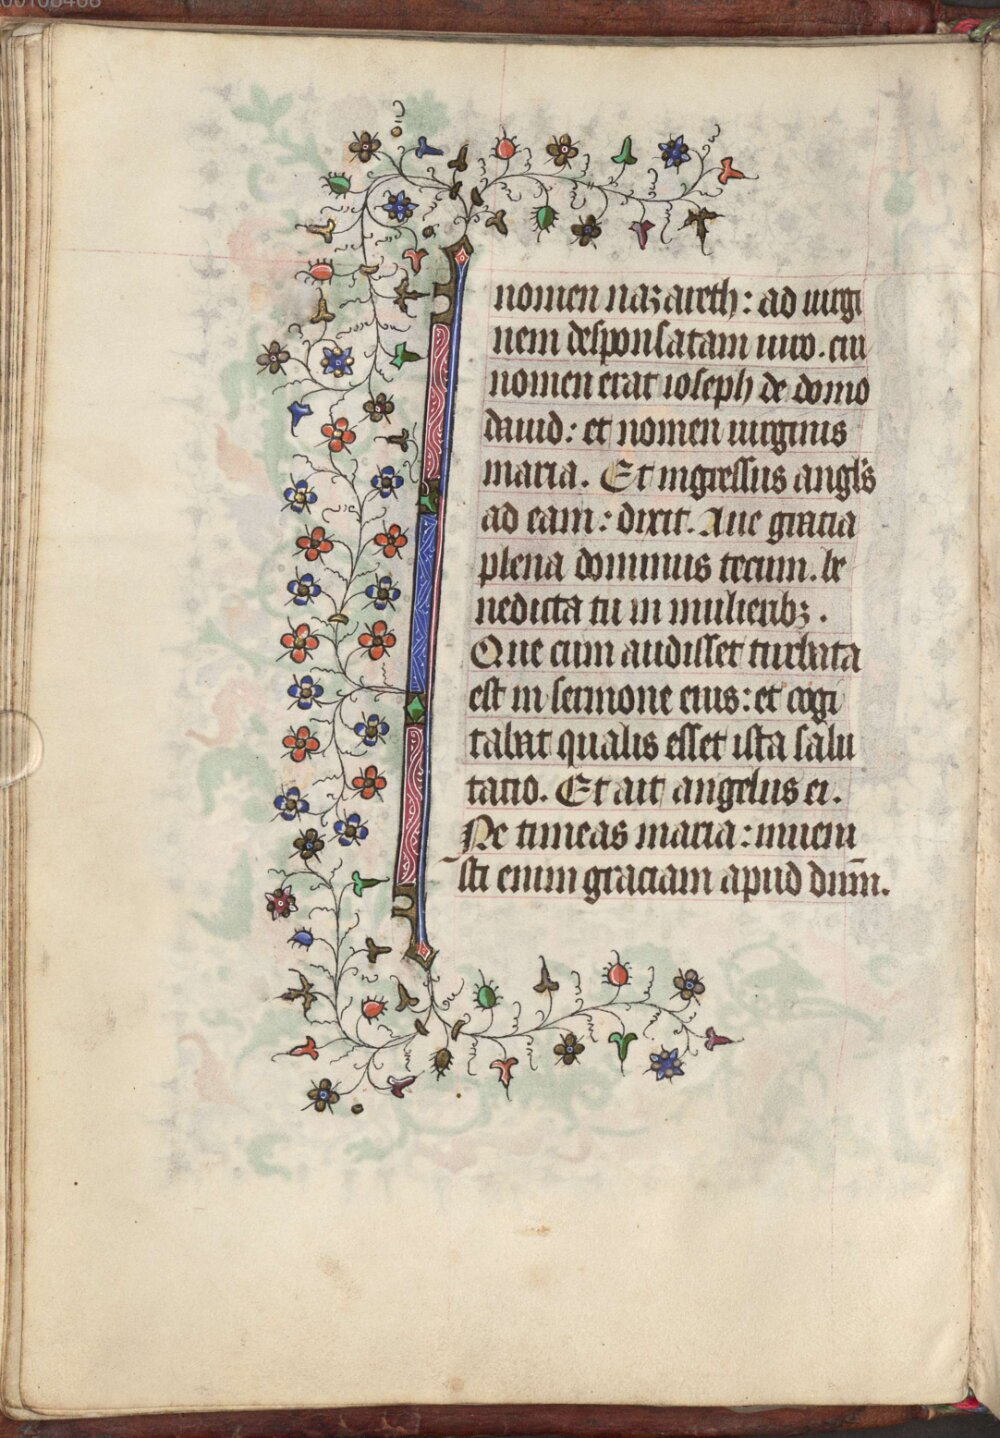 nomen nazareth: ad uirgi
nem desponsatam uiro. cui
nomen erat ioseph de domo
dauid: et nomen uirginis
maria. Et ingressus angl's
ad eam: dixit. Aue gracia
plena dominus tecum. be
nedicta tu in mulierib3.
Que cum audisset turbata
est in sermone eius: et cogi
tabat qualis esset ista salu
tatio. Et ait angelus ei.
Ne timeas maria: inueni
sti enim graciam apud dn̄m.